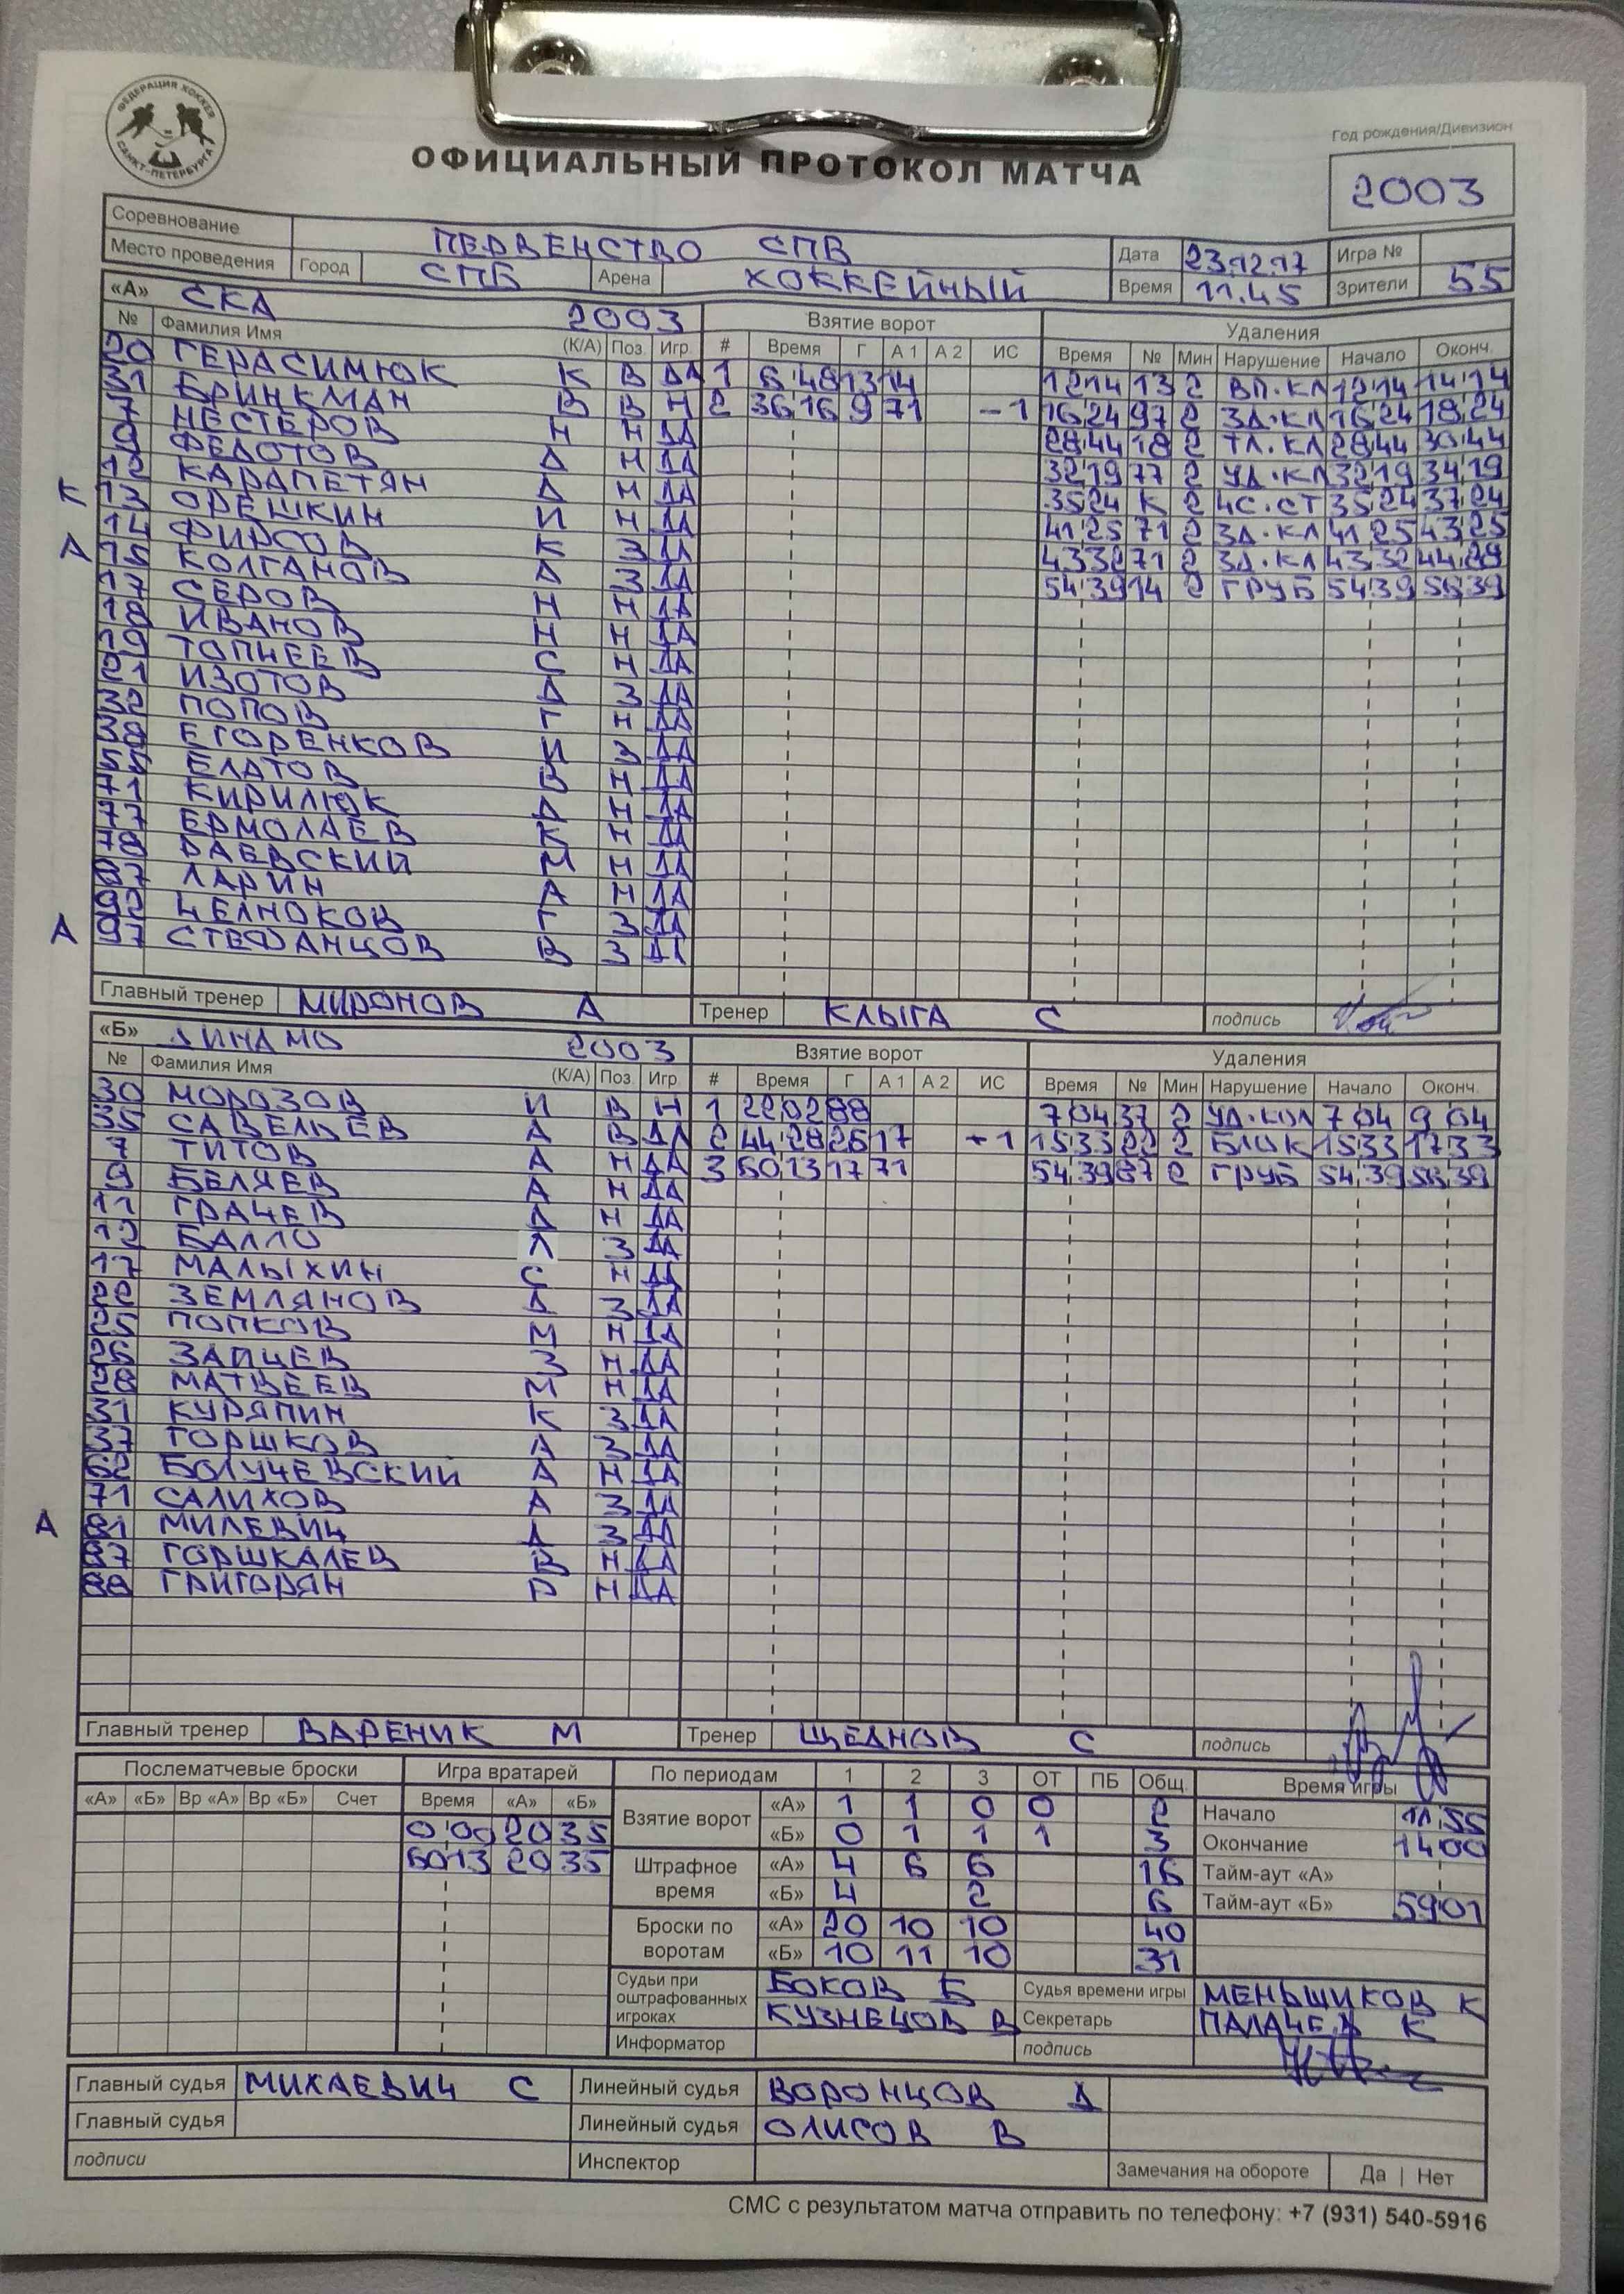 ФЕДЕРАЦИЯ ХОККЕЯ САНКТ-ПЕТЕРБУРГА
Год рождения/Дивизион
ОФИЦИАЛЬНЫЙ ПРОТОКОЛ МАТЧА
2003
Соревнование ПЕРВЕНСТВО СПБ Дата 23.12.17 Игра №
Место проведения Город СПБ Арена ХОККЕЙНЫЙ Время 11.45 Зрители 55
«А» СКА 2003 Взятие ворот Удаления
№ Фамилия Имя (К/А) Поз. Игр. # Время Г А 1 А 2 ИС Время № Мин Нарушение Начало Оконч.
20 ГЕРАСИМЮК К В ДА 1 6 48 13 14 12 14 13 2 ВП.КЛ 12 14 14 14
31 БРИНКМАН В В Н 2 36 16 9 71 -1 16 24 97 2 ЗД.КЛ 16 24 18 24
7 НЕСТЕРОВ Н Н ДА 28 44 18 2 ТЛ.КЛ 28 44 30 44
9 ФЕДОТОВ Д Н ДА 32 19 77 2 УД.КЛ 32 19 34 19
12 КАРАПЕТЯН Д Н ДА 35 24 К 2 ЧС.СТ 35 24 37 24
К 13 ОРЕШКИН И Н ДА 41 25 71 2 ЗД.КЛ 41 25 43 25
14 ФИРСОВ К З ДА 43 32 71 2 ЗД.КЛ 43 32 44 28
А 15 КОЛГАНОВ Д З ДА 54 39 14 2 ГРУБ 54 39 56 39
17 СЕРОВ Н Н ДА
18 ИВАНОВ Н Н ДА
19 ТОПЧЕЕВ С Н ДА
21 ИЗОТОВ Д З ДА
32 ПОПОВ Г Н ДА
38 ЕГОРЕНКОВ И З ДА
55 ЕЛАТОВ В Н ДА
71 КИРИЛЮК Д Н ДА
77 ЕРМОЛАЕВ К Н ДА
78 РАЕВСКИЙ М Н ДА
87 ЛАРИН А Н ДА
92 ЧЕЛНОКОВ Г З ДА
А 97 СТЕФАНЦОВ В З ДА
Главный тренер МИРОНОВ А Тренер КЛЫГА С подпись
«Б» ДИНАМО 2003 Взятие ворот Удаления
№ Фамилия Имя (К/А) Поз. Игр. # Время Г А 1 А 2 ИС Время № Мин Нарушение Начало Оконч.
30 МОРОЗОВ И В Н 1 22 02 88 7 04 37 2 УД.КОЛ 7 04 9 04
35 САВЕЛЬЕВ А В ДА 2 44 28 26 17 +1 15 33 22 2 БЛОК 15 33 17 33
7 ТИТОВ А Н ДА 3 60 13 17 71 54 39 87 2 ГРУБ 54 39 56 39
9 БЕЛЯЕВ А Н ДА
11 ГРАЧЕВ Д Н ДА
12 БАЛЛО Л З ДА
17 МАЛЫХИН С Н ДА
22 ЗЕМЛЯНОВ Д З ДА
25 ПОПКОВ М Н ДА
26 ЗАЙЦЕВ З Н ДА
28 МАТВЕЕВ М Н ДА
31 КУРЯПИН К З ДА
37 ГОРШКОВ А З ДА
62 БОЛУЧЕВСКИЙ А Н ДА
71 САЛИХОВ А З ДА
А 81 МИЛЕВИЧ Д З ДА
87 ГОРШКАЛЕВ В Н ДА
88 ГРИГОРЯН Р Н ДА
Главный тренер ВАРЕНИК М Тренер ЩЕДНОВ С подпись
Послематчевые броски Игра вратарей По периодам 1 2 3 ОТ ПБ Общ. Время игры
«А» «Б» Вр «А» Вр «Б» Счет Время «А» «Б» Взятие ворот «А» 1 1 0 0 2 Начало 11 55
0 00 20 35 «Б» 0 1 1 1 3 Окончание 14 00
60 13 20 35 Штрафное время «А» 4 6 6 16 Тайм-аут «А»
«Б» 4 2 6 Тайм-аут «Б» 59 01
Броски по воротам «А» 20 10 10 40
«Б» 10 11 10 31
Судьи при оштрафованных игроках БОКОВ Б Судья времени игры МЕНЬШИКОВ К
КУЗНЕЦОВ В Секретарь ПАЛАЧЕВ К
Информатор подпись
Главный судья МИХАЕВИЧ С Линейный судья ВОРОНЦОВ Д
Главный судья Линейный судья ОЛИСОВ В
подписи Инспектор Замечания на обороте Да | Нет
СМС с результатом матча отправить по телефону: +7 (931) 540-5916